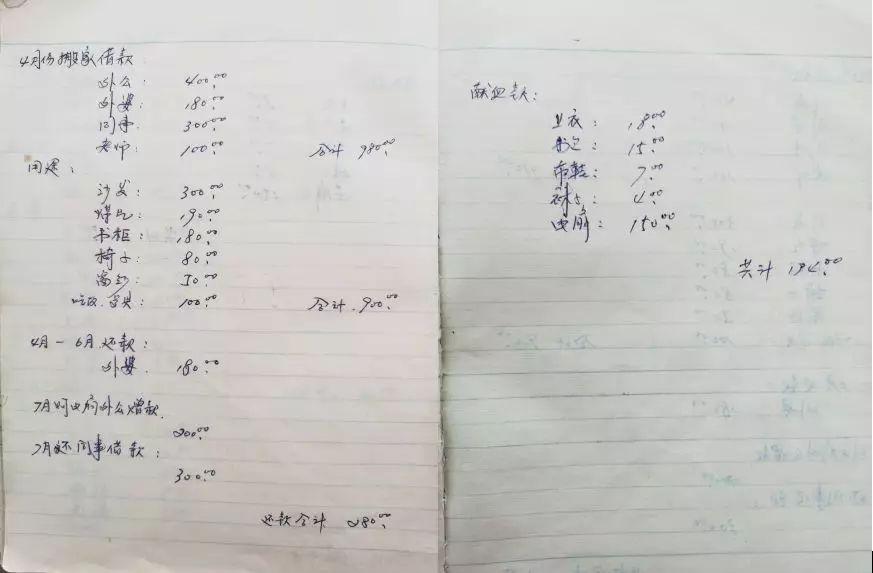 4月份搬家借款:
外公: 400.00
外婆: 180.00
同事: 300.00
老师: 100.00 合计 980.00
用途:
沙发: 300.00
煤气: 190.00
书柜: 180.00
椅子: 80.00
窗纱 50.00
吃饭. 100.00 合计.900.00
4月-6月.还款:
外婆. 180.00
7月外公赠款.
200.00
7月还同事借款:
300.00
还款合计 280.00
献血款:
上衣: 18.00
书包: 15.00
布鞋: 7.00
袜子: 4.00
电扇: 150.00
共计 194.00